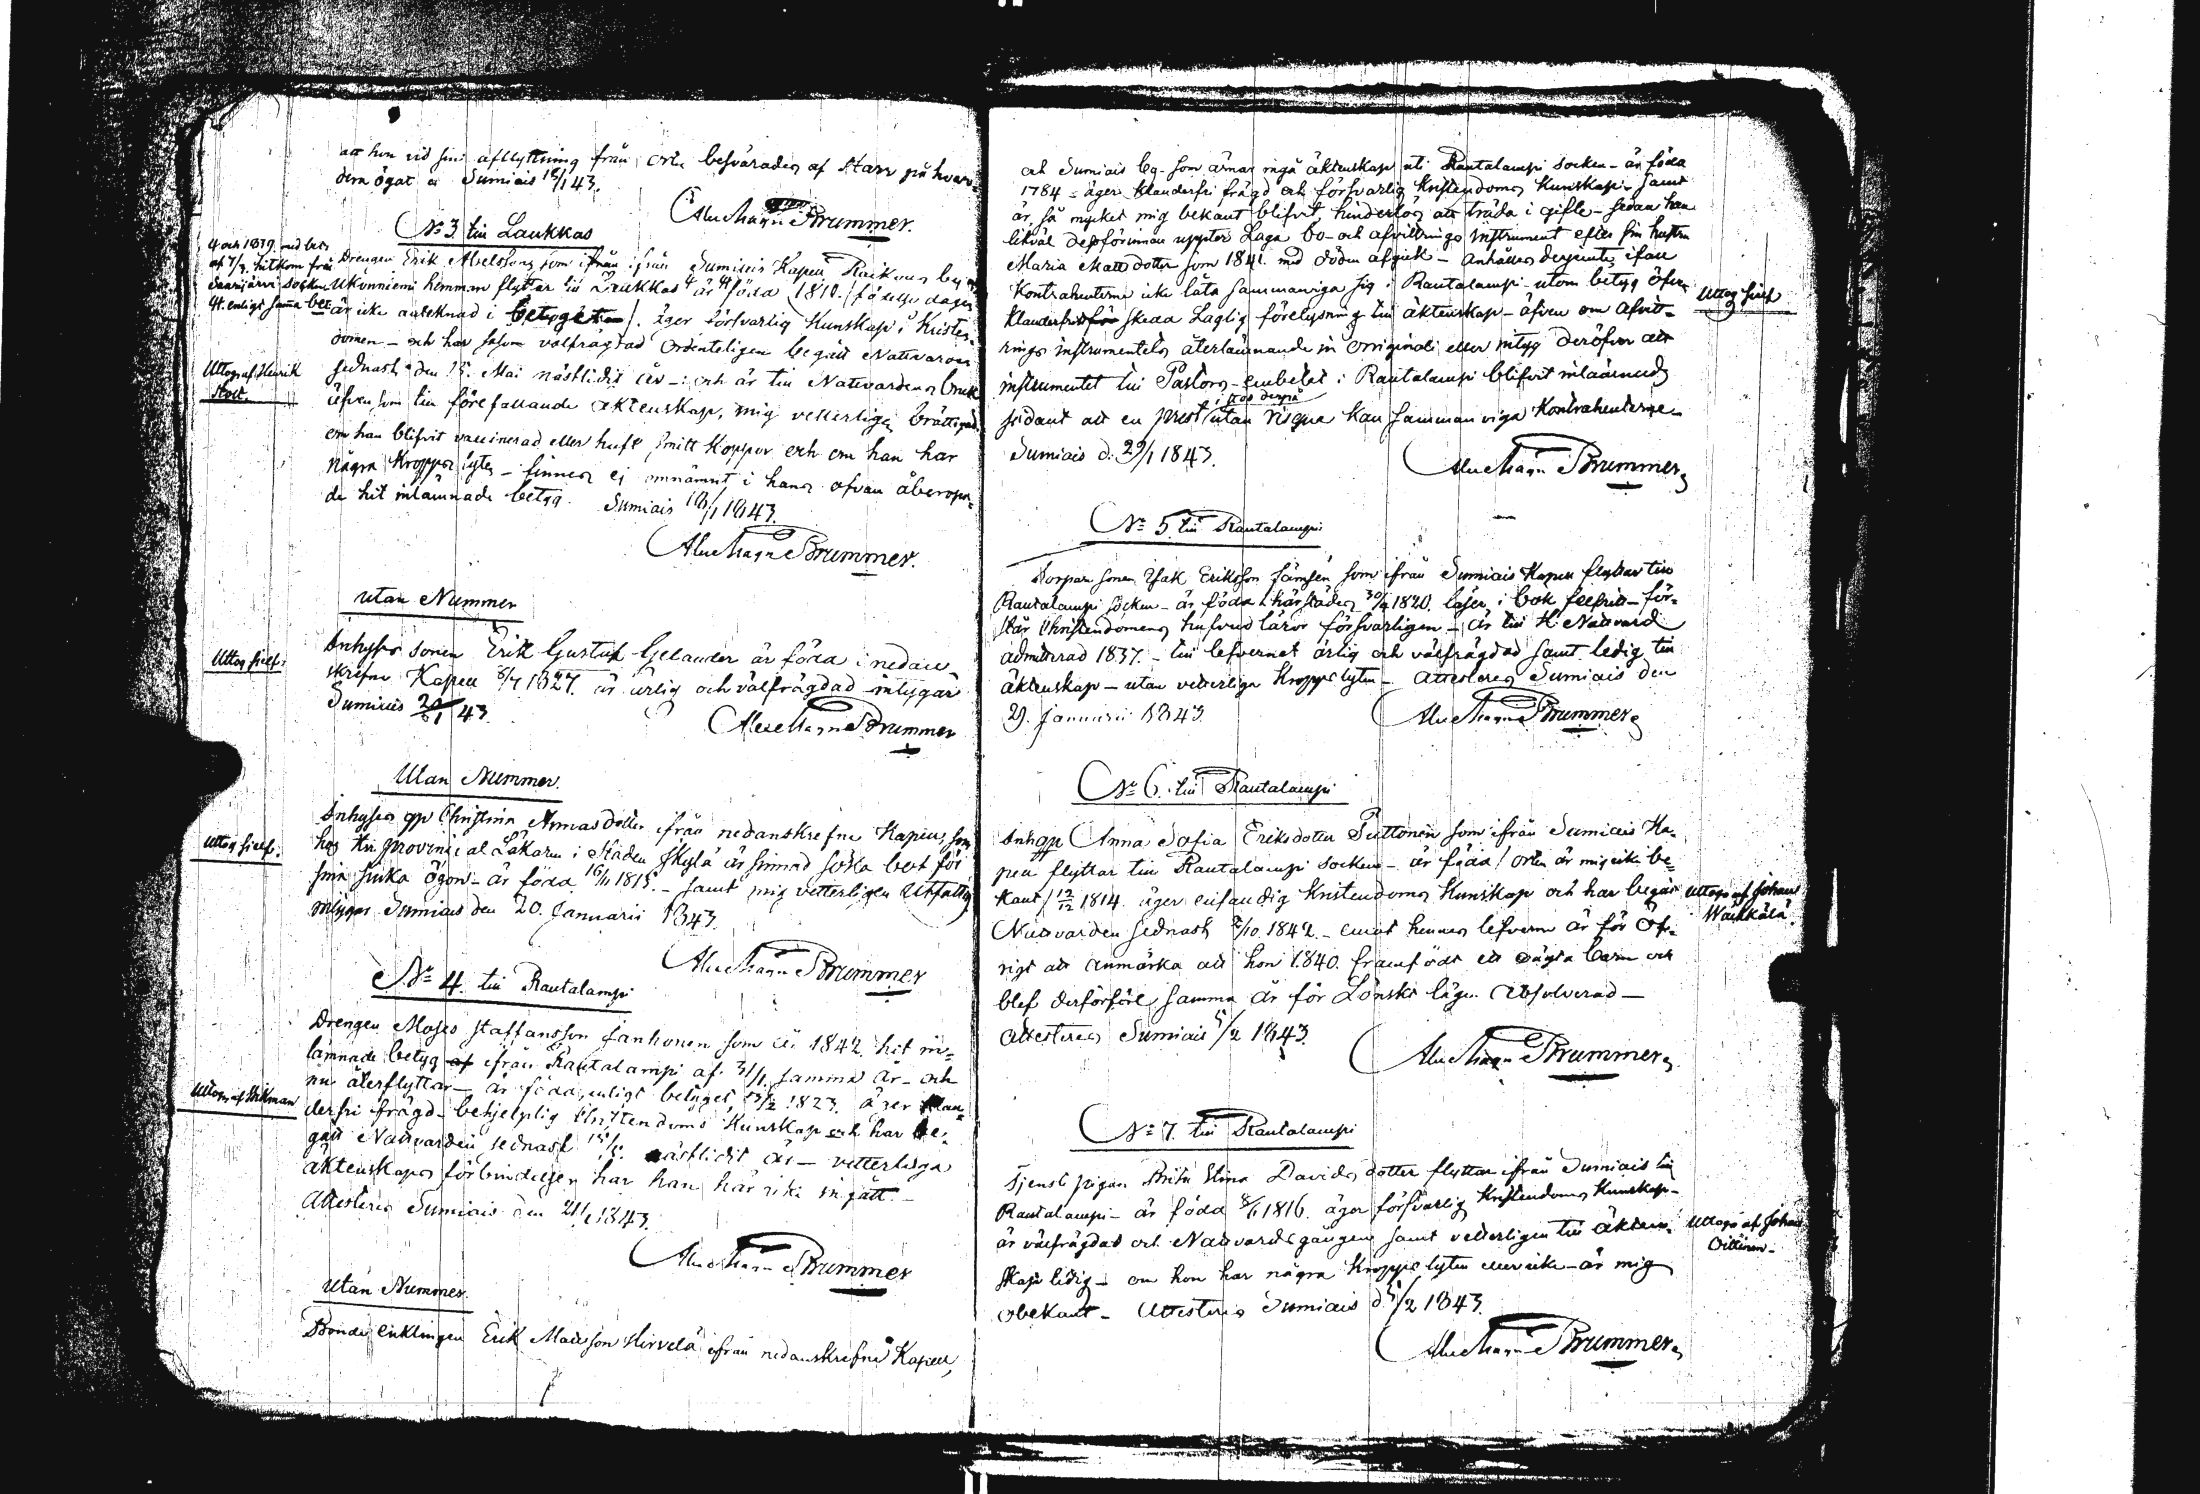 att hon vid sin aflyttning från orten besvärades af Starr på hvar-
dera ögat Sumiais 18/1 43.
Alex Magn Brummer.
No 3 till Laukkas
4 och 1839 med bet.
af 7/3. hitkom från
Saarijärvi socken
enligt samma bet.
Drengen Erik Abelsson, som ifrån Sumiais Kapell
Ukonniemi hemman flyttar till Laukkas är född 1810. / födelse dagen
är icke antecknad i betyget /. äger försvarlig Kunskap i Kristen-
domen - och har såsom välfrägdad ordenteligen begått Nattvarden
sednast den 15. Mai nästlidit år - och är till Nattvardens bruk
Uttogs af Henrik
Stolt
äfven som till förefallande äktenskap, mig veterligen oråttspord
om han blifvit vaccinerad eller haft Smitt Koppor och om han har
några Kropps lyten - finnes ej omnämnt i hans ofvan åberopa-
de hit inlämnade betyg. Sumiais 18/1 1843.
Alex Magn Brummer.
utan Nummer
Uttog sielf.
Inhyses sonen Erik Gustaf Gelander är född i nedan
skrefne Kapell 6/7 1827. är ärlig och välfrägdad intygar
Sumiais 20/1 43.
Alex Magn Brummer
Utan Nummer.
Uttog sielf.
Inhyses qp Christina Annasdotter ifrån nedanskrefne Kapell, som
hos Hr Provincial Läkaren i Staden Jkylä är sinnad söka bot för
sina sjuka ögon - är född 16/11 1815. - samt mig vetterligen Utfattig
intygas Sumiais den 20. Januarii 1843.
Alex Magn Brummer
No 4. till Rautalampi
Drengen Moses Staffansson Janhonen som år 1842 hit in-
lämnade betyg af ifrån Rautalampi af 31/1 samma år - och
nu återflyttar - är född, enligt betyget, 1823. äger klan-
Uttogs af Wikman
derfri frägd - behjelplig Christendoms Kunskap och har be-
gått Nattvarden sednast nästlidit år - vetterliga
äktenskaps förbindelser har han här icke ingått. -
Attesteras Sumiais den 21/1 1843.
Alex Magn Brummer
Utan Nummer.
Bonde enklingen Erik Matsson Hirvelä ifrån nedanskrefne Kapell,
och Sumiais by - som ärnar ingå äktenskap uti Rautalampi socken - är född
1784 - äger klanderfri frägd och försvarlig Kristendoms Kunskap - samt
är så mycket mig bekant blifvit, hinderlös att träda i gifte - sedan han
likväl dessförinnan uppter Laga bo- och afvittrings Instrument efter sin hustru
Maria Mattsdotter som 1841. med döden afgick - anhålles derjemte, ifall
Kontrahenterne icke låta sammanviga sig i Rautalampi - utom betyg öfver
Uttog sielf
Klanderfritt skedd Laglig förelysning till äktenskap - äfven om Afvitt-
rings instrumentets återlämnande in originali eller intyg deröfver att
instrumentet till Pastors-embetet i Rautalampi blifvit inlämnadt
sådant att en prest i stöd deraf utan risque kan sammanviga Kontrahenterne
Sumiais d. 29/1 1843.
Alex Magn Brummer
No 5 till Rautalampi
Torpare sonen Isak Eriksson Jämsén som ifrån Sumiais Kapell flyttar till
Rautalampi socken - är född härstädes 30/4 1820. läser i bok felfritt - för-
står Christendomens hufvud läror försvarligen - är till H. Nattvard
admitterad 1837. - till lefvernet ärlig och välfrägdad samt ledig till
äktenskap - utan vetterliga Kropps lyten - Attesteras Sumiais den
29. Januarii 1843.
Alex Magn Brummer
No 6. till Rautalampi
Inh qp Anna Sofia Eriksdotter Puttonen som ifrån Sumiais Ka-
pell flyttar till Rautalampi socken - är född / orten är mig icke be-
kant / 12/12 1814 äger enfaldig Kristendoms Kunskap och har begått
Uttogs af Johan
Waikkälä.
Nattvarden sednast 2/10 1842. - emot hennes lefverne är för öf-
rigt att anmärka att hon 1840. framfödt ett oägta barn och
blef derförföre samma år för Lönska läger Absolverad -
Attesteras Sumiais 5/2 1843.
Alex Magn Brummer
No 7. till Rautalampi
Tjenste pigan Brita Stina Davidsdotter flyttar ifrån Sumiais till
Rautalampi - är född 8/1 1816. äger försvarlig Kristendoms Kunskap -
är välfrägdad och Nattvardsgången samt vetterligen till äkten-
Uttogs af Johan
Oittinen -
skap ledig - om hon har några Kropps lyten eller icke - är mig
obekant - Attesteras Sumiais d. 5/2 1843.
Alex Magn Brummer